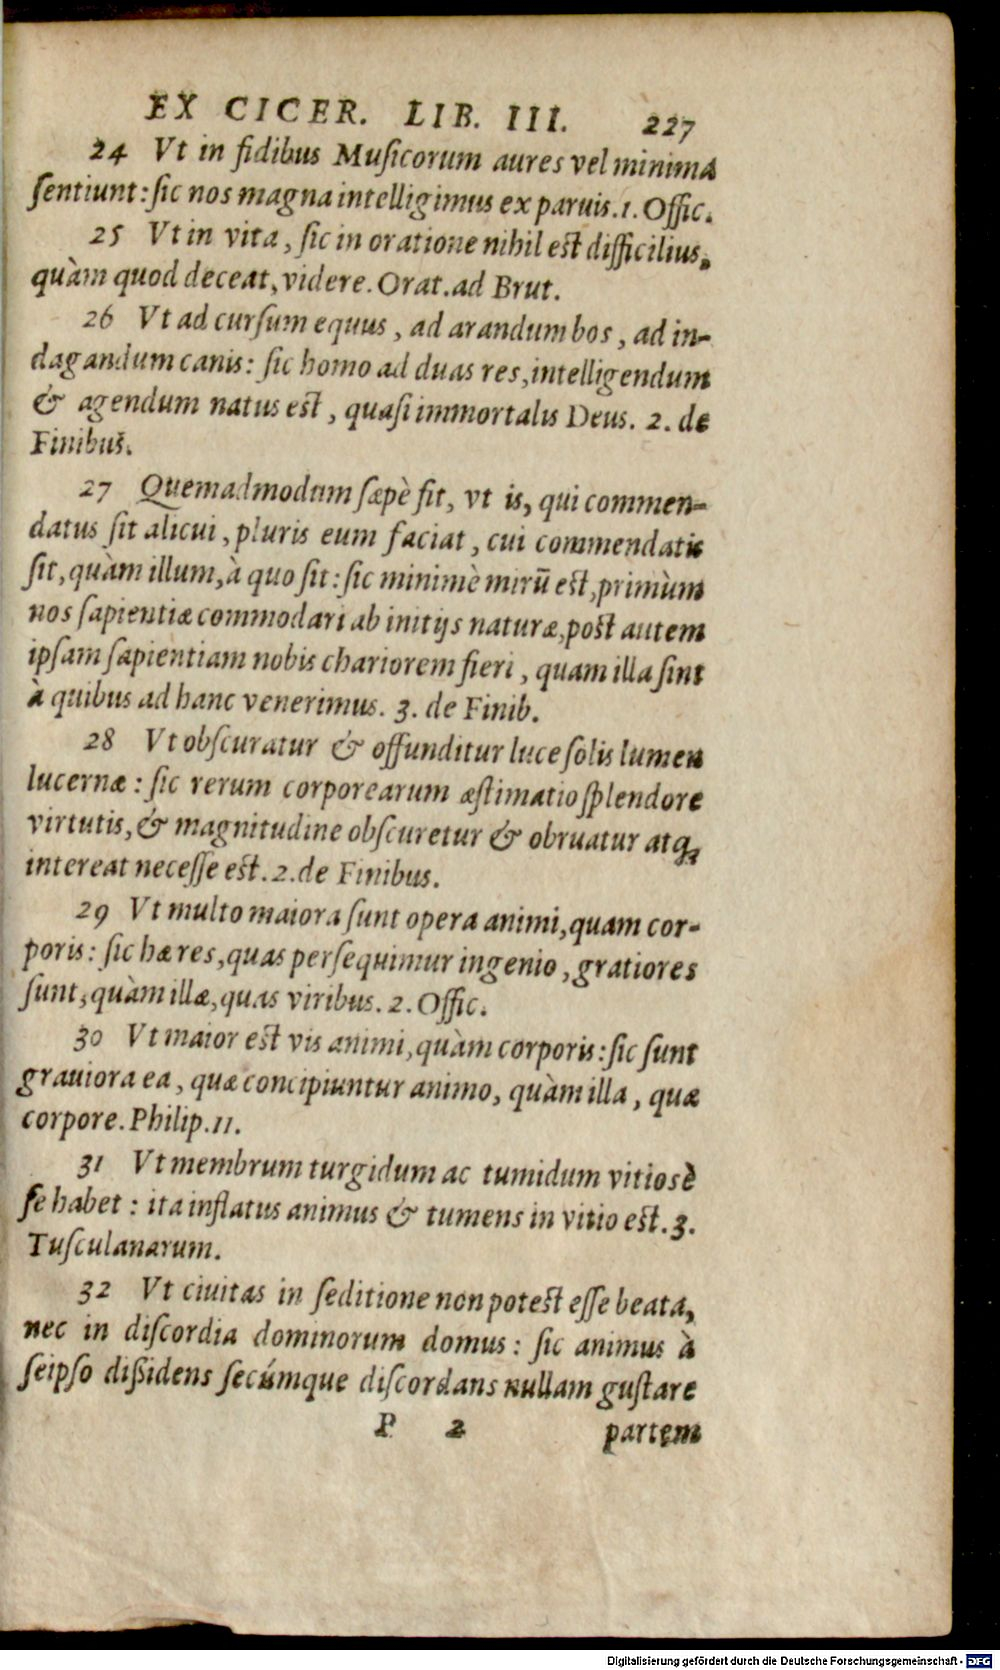 EX CICER. LIB. III. 227
24 Vt in fidibus Muſicorum aures vel minima
ſentiunt: ſic nos magna intelligimus ex paruis. 1. Offic.
25 Vt in vita, ſic in oratione nihil est difficilius,
quàm quod deceat, videre. Orat. ad Brut.
26 Vt ad curſum equus, ad arandum bos, ad in-
dagandum canis: ſic homo ad duas res, intelligendum
& agendum natus est, quaſi immortalis Deus. 2. de
Finibus.
27 Quemadmodum ſæpè fit, vt is, qui commen-
datus ſit alicui, pluris eum faciat, cui commendatus
ſit, quàm illum, à quo ſit: ſic minimè mirū est, primùm
nos ſapientiæ commodari ab initijs naturæ, post autem
ipſam ſapientiam nobis chariorem fieri, quam illa ſint
à quibus ad hanc venerimus. 3. de Finib.
28 Vt obſcuratur & offunditur luce ſolis lumen
lucernæ: ſic rerum corporearum æſtimatio ſplendore
virtutis, & magnitudine obſcuretur & obruatur atq;
intereat neceſſe est. 2. de Finibus.
29 Vt multo maiora ſunt opera animi, quam cor-
poris: ſic hæ res, quas perſequimur ingenio, gratiores
ſunt, quàm illæ, quas viribus. 2. Offic.
30 Vt maior est vis animi, quàm corporis: ſic ſunt
grauiora ea, quæ concipiuntur animo, quàm illa, quæ
corpore. Philip. 11.
31 Vt membrum turgidum ac tumidum vitiosè
ſe habet: ita inflatus animus & tumens in vitio est. 3.
Tuſculanarum.
32 Vt ciuitas in ſeditione non potest eſſe beata,
nec in diſcordia dominorum domus: ſic animus à
ſeipſo dißidens ſecúmque diſcordans nullam guſtare
P 2 partem
Digitalisierung gefördert durch die Deutsche Forschungsgemeinschaft - DFG